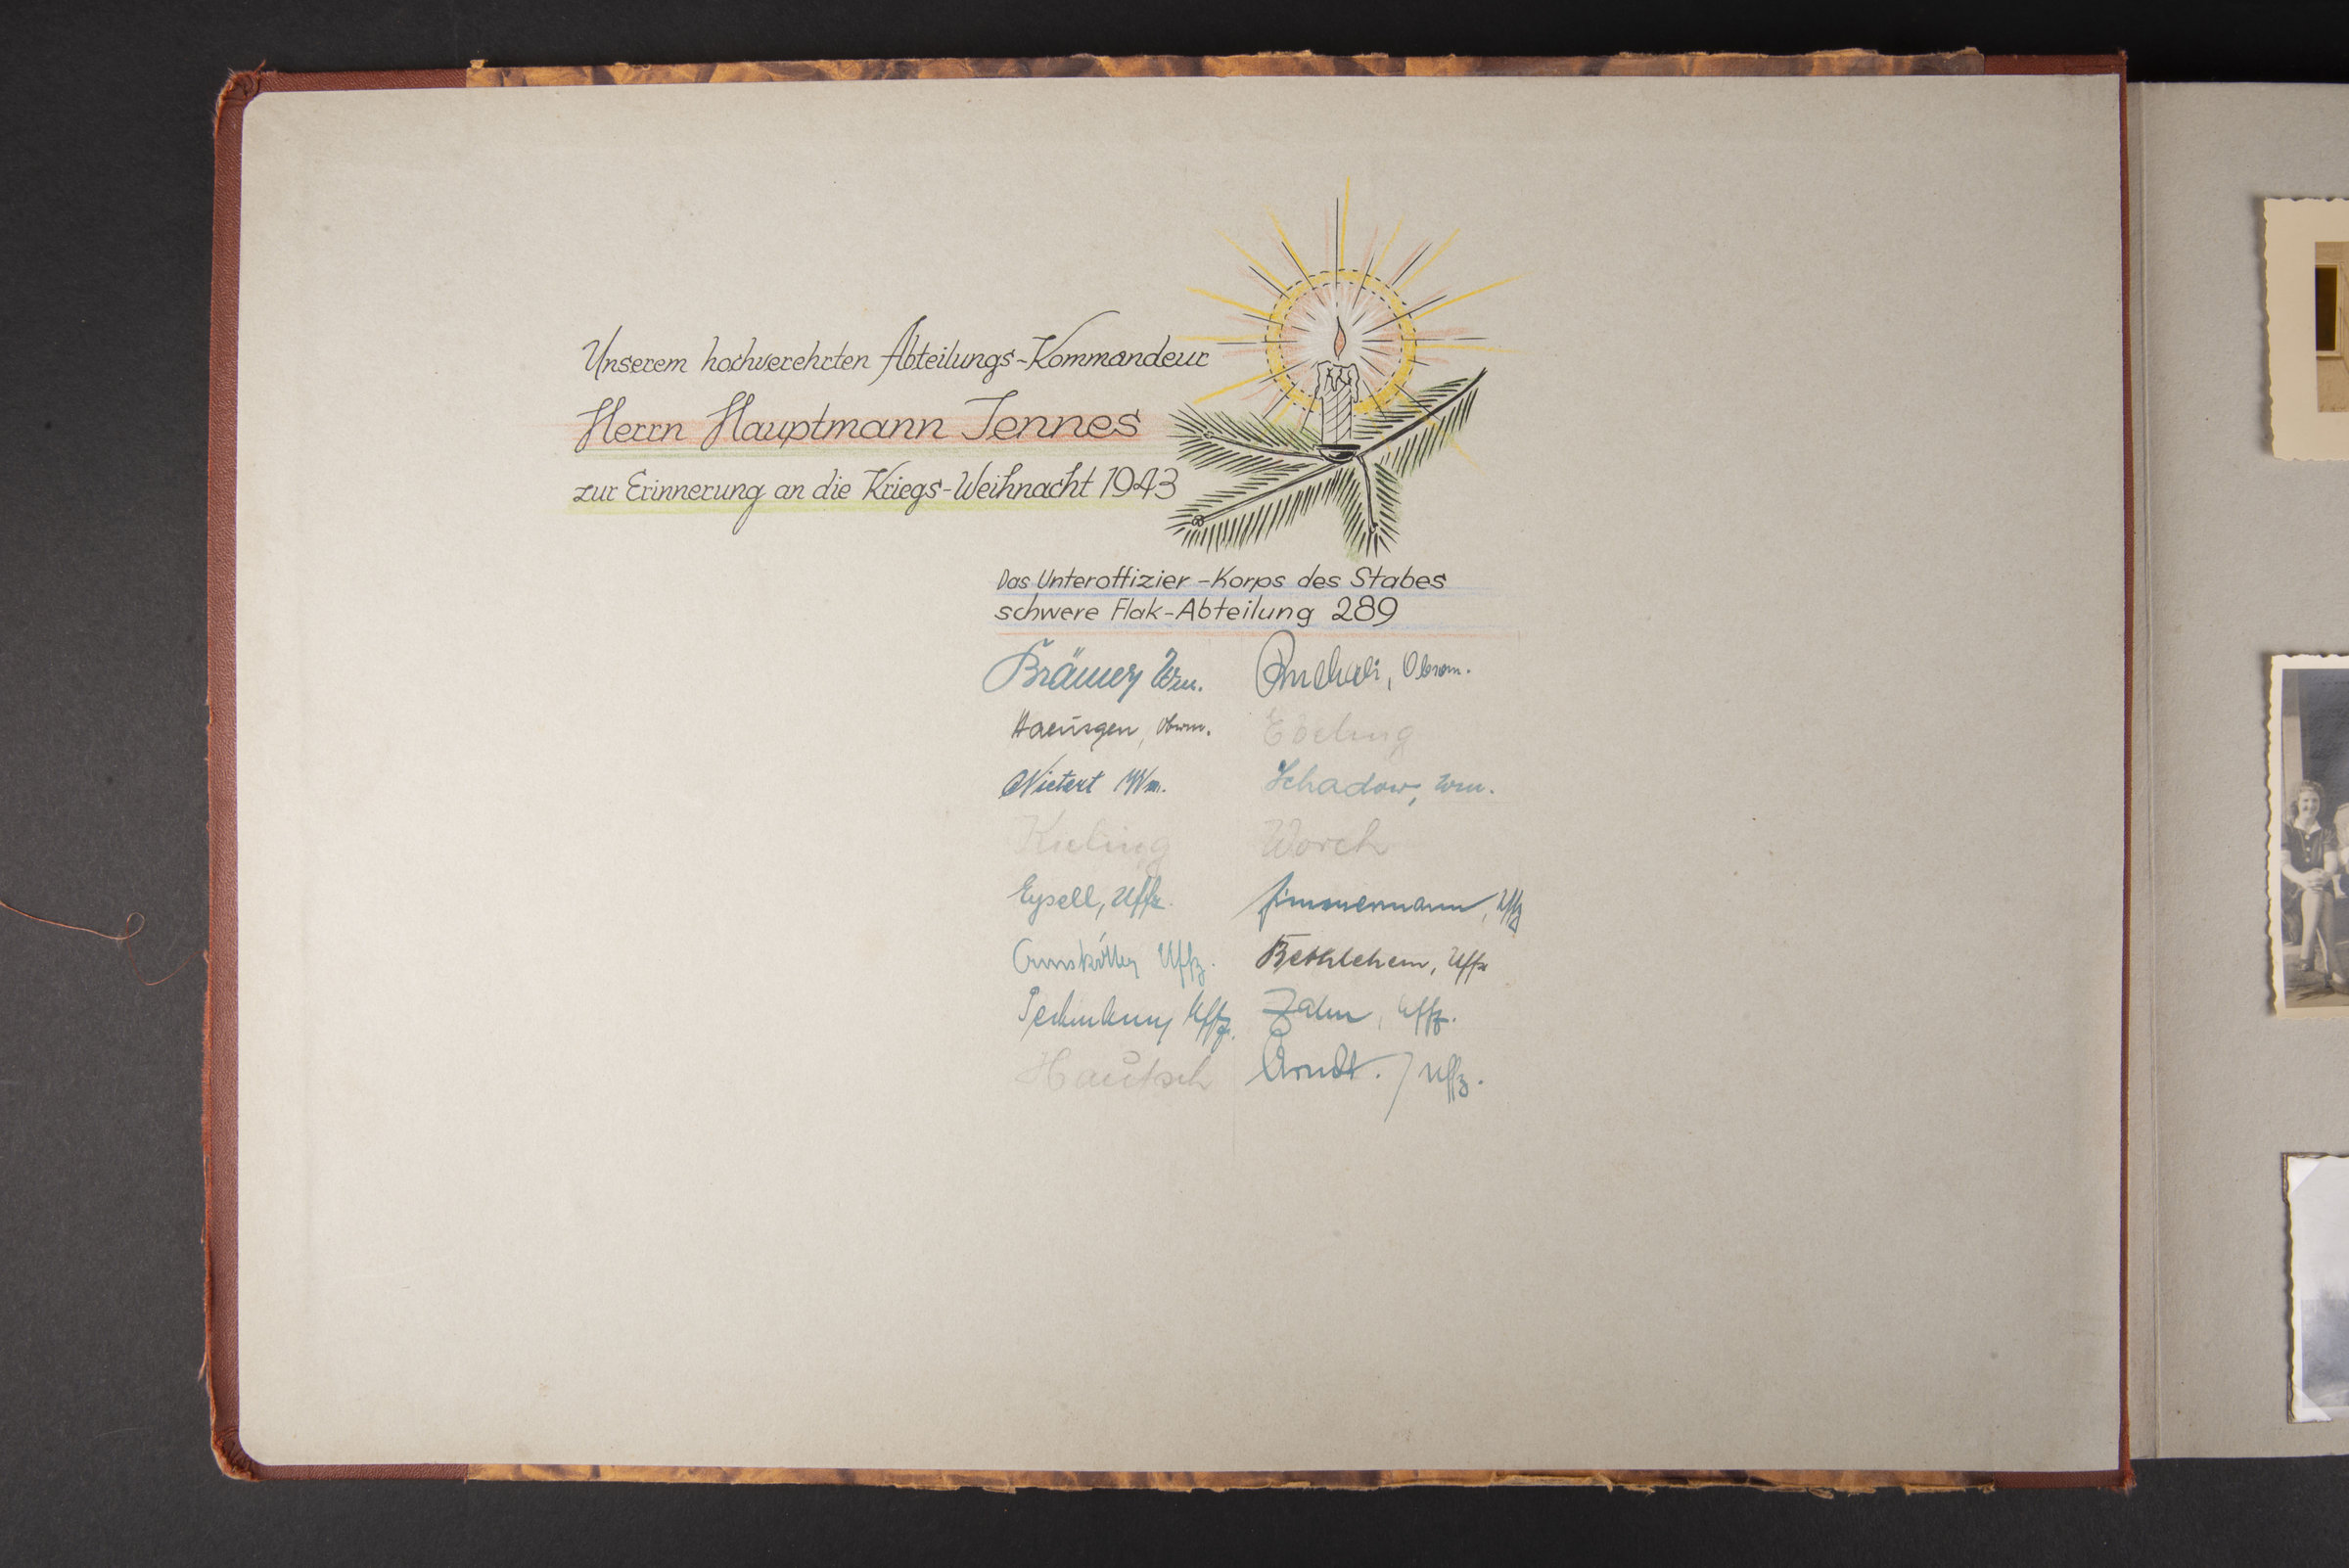 Unserem hochverehrten Abteilungs-Kommandeur
Herrn Hauptmann Jennes
zur Erinnerung an die Kriegs-Weihnacht 1943
Das Unteroffizier-Korps des Stabes
schwere Flak-Abteilung 289
Brämer Wm.
Haeusgen, Obwm. Ebeling
Nietert Wm. Schadow, Wm.
Kieling Worch
Eysell, Uffz. Zimmermann, Uffz
Uffz. Bethlehem, Uffz
Uffz. Zahn, Uffz.
Hautsch Arndt. / Uffz.